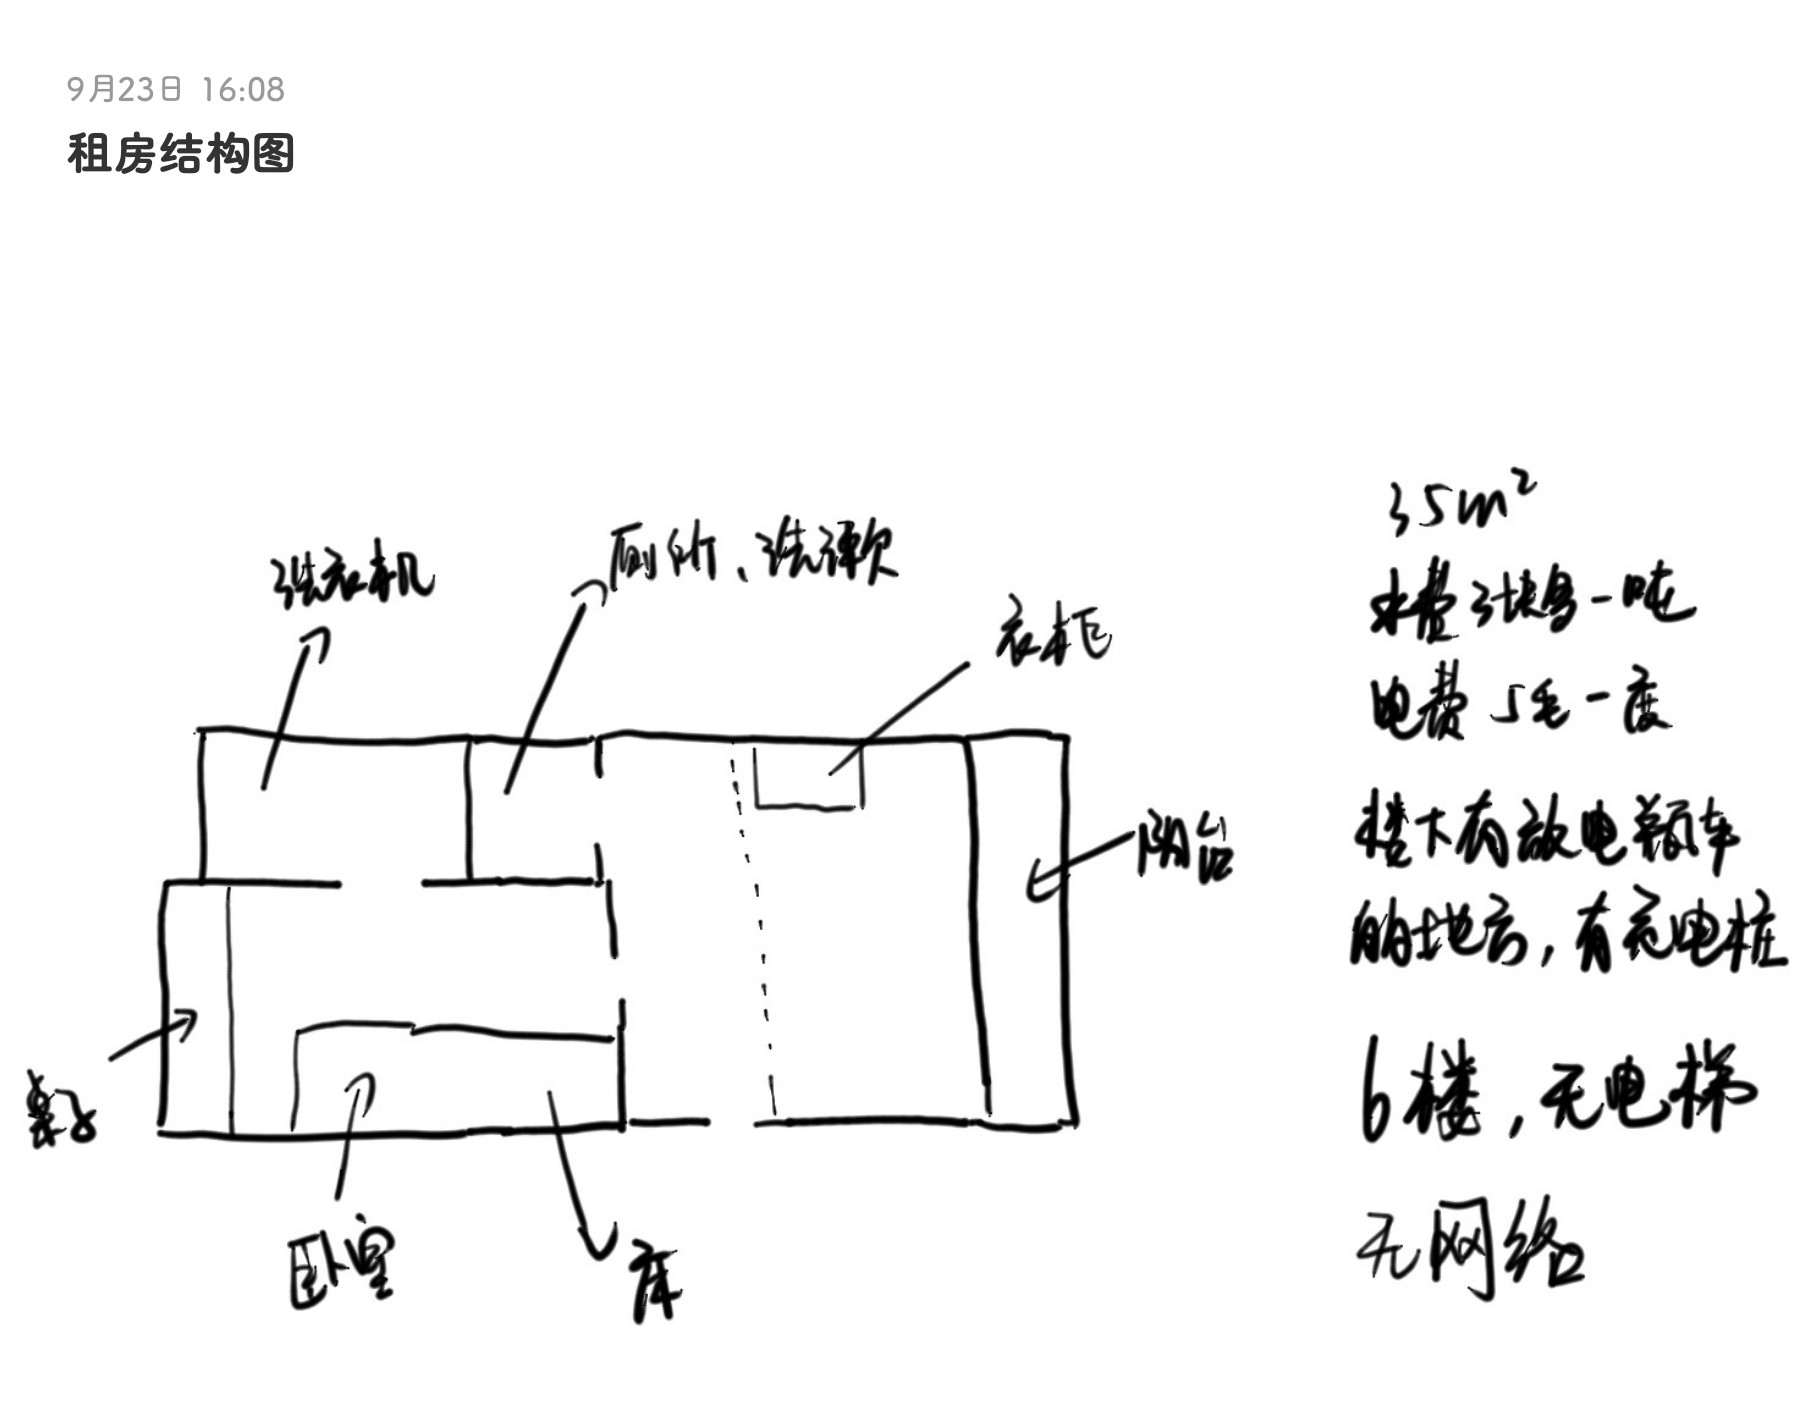 9月23日 16:08
租房结构图
洗衣机
厕所、洗漱
衣柜
阳台
桌子
卧室
床
35m²
水费3块多一吨
电费5毛一度
楼下有放电瓶车
的地方，有充电桩
6楼，无电梯
无网络